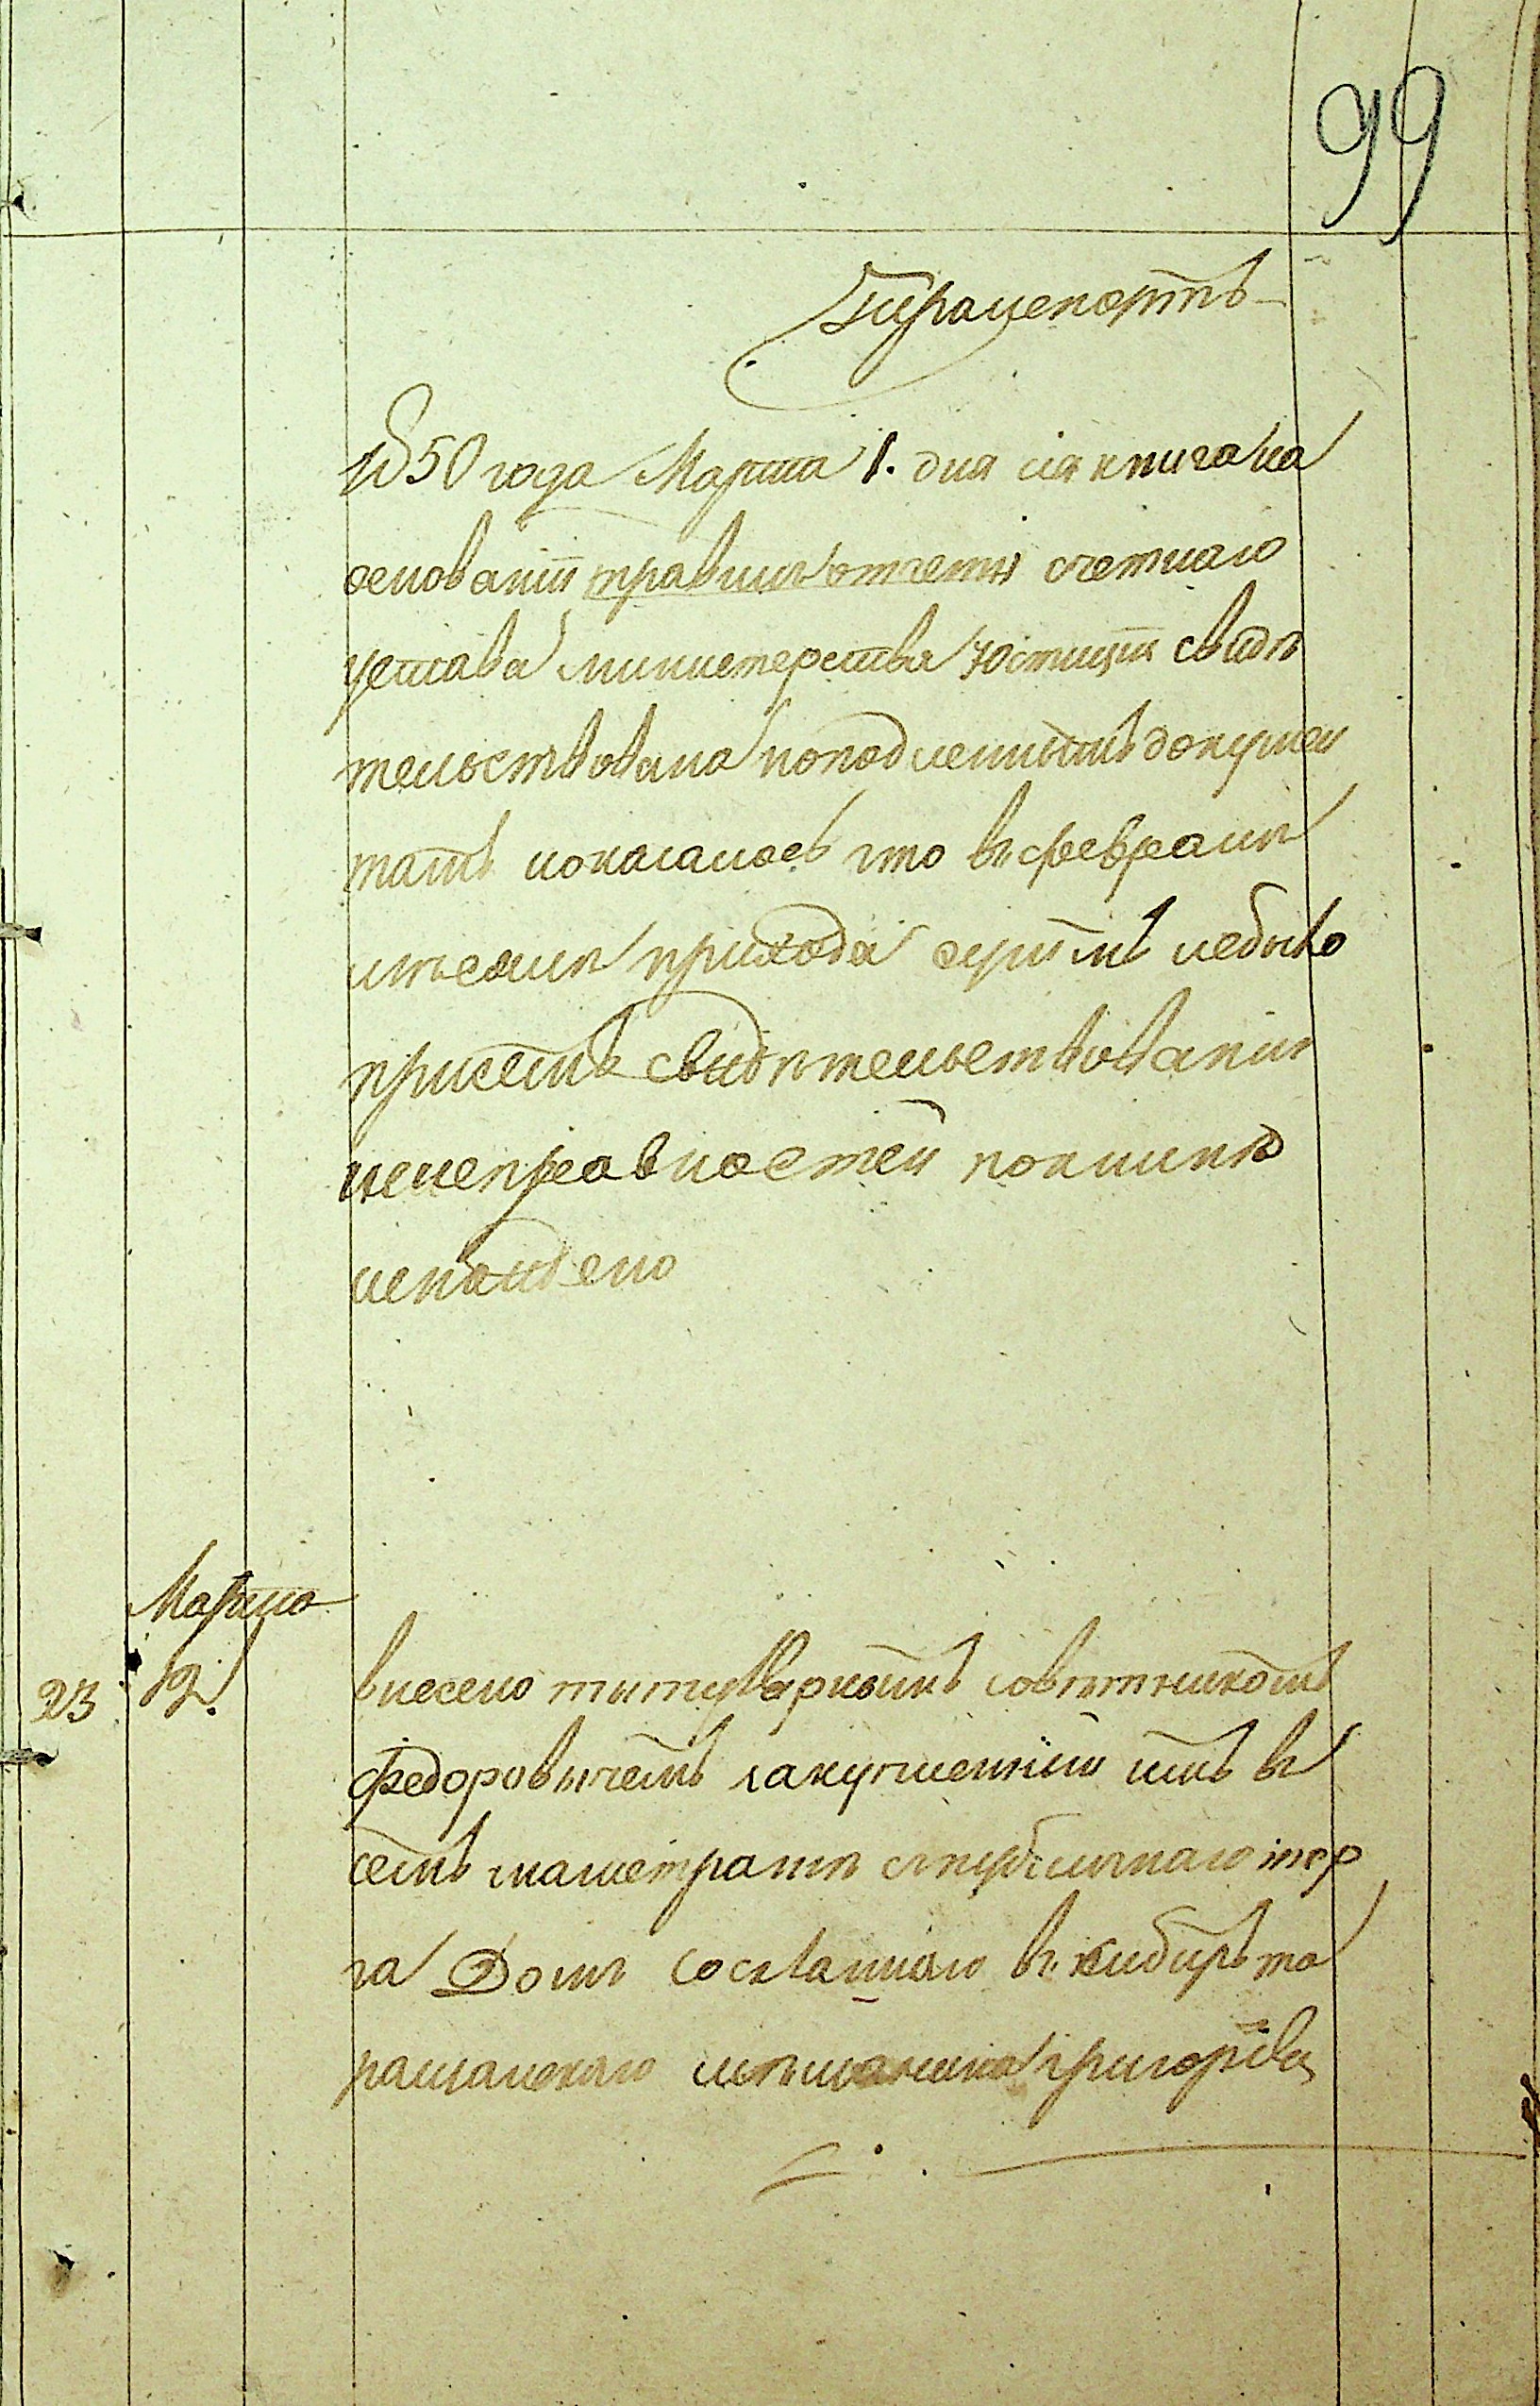 99
Транспортъ
1850 года Марта 1. дня сія книга на
основаніи правилъ отчетн счетнаго
устава министерства Юстиціи свидѣ
тельствована поподленнымъ докумен
тамъ показалось что въ февралѣ
мѣсяцѣ прихода суммъ небыло
присемъ свидѣтельствованіи
неисправностей покнигѣ
ненайдено
Марта
23 12. внесено титулярнымъ совѣтникомъ
Федоровичемъ закупленный имъ въ
семъ магистратѣ спубличнаго тор
га Домъ сосланнаго въ сибирь та
ращанскаго мѣщанина григорьева